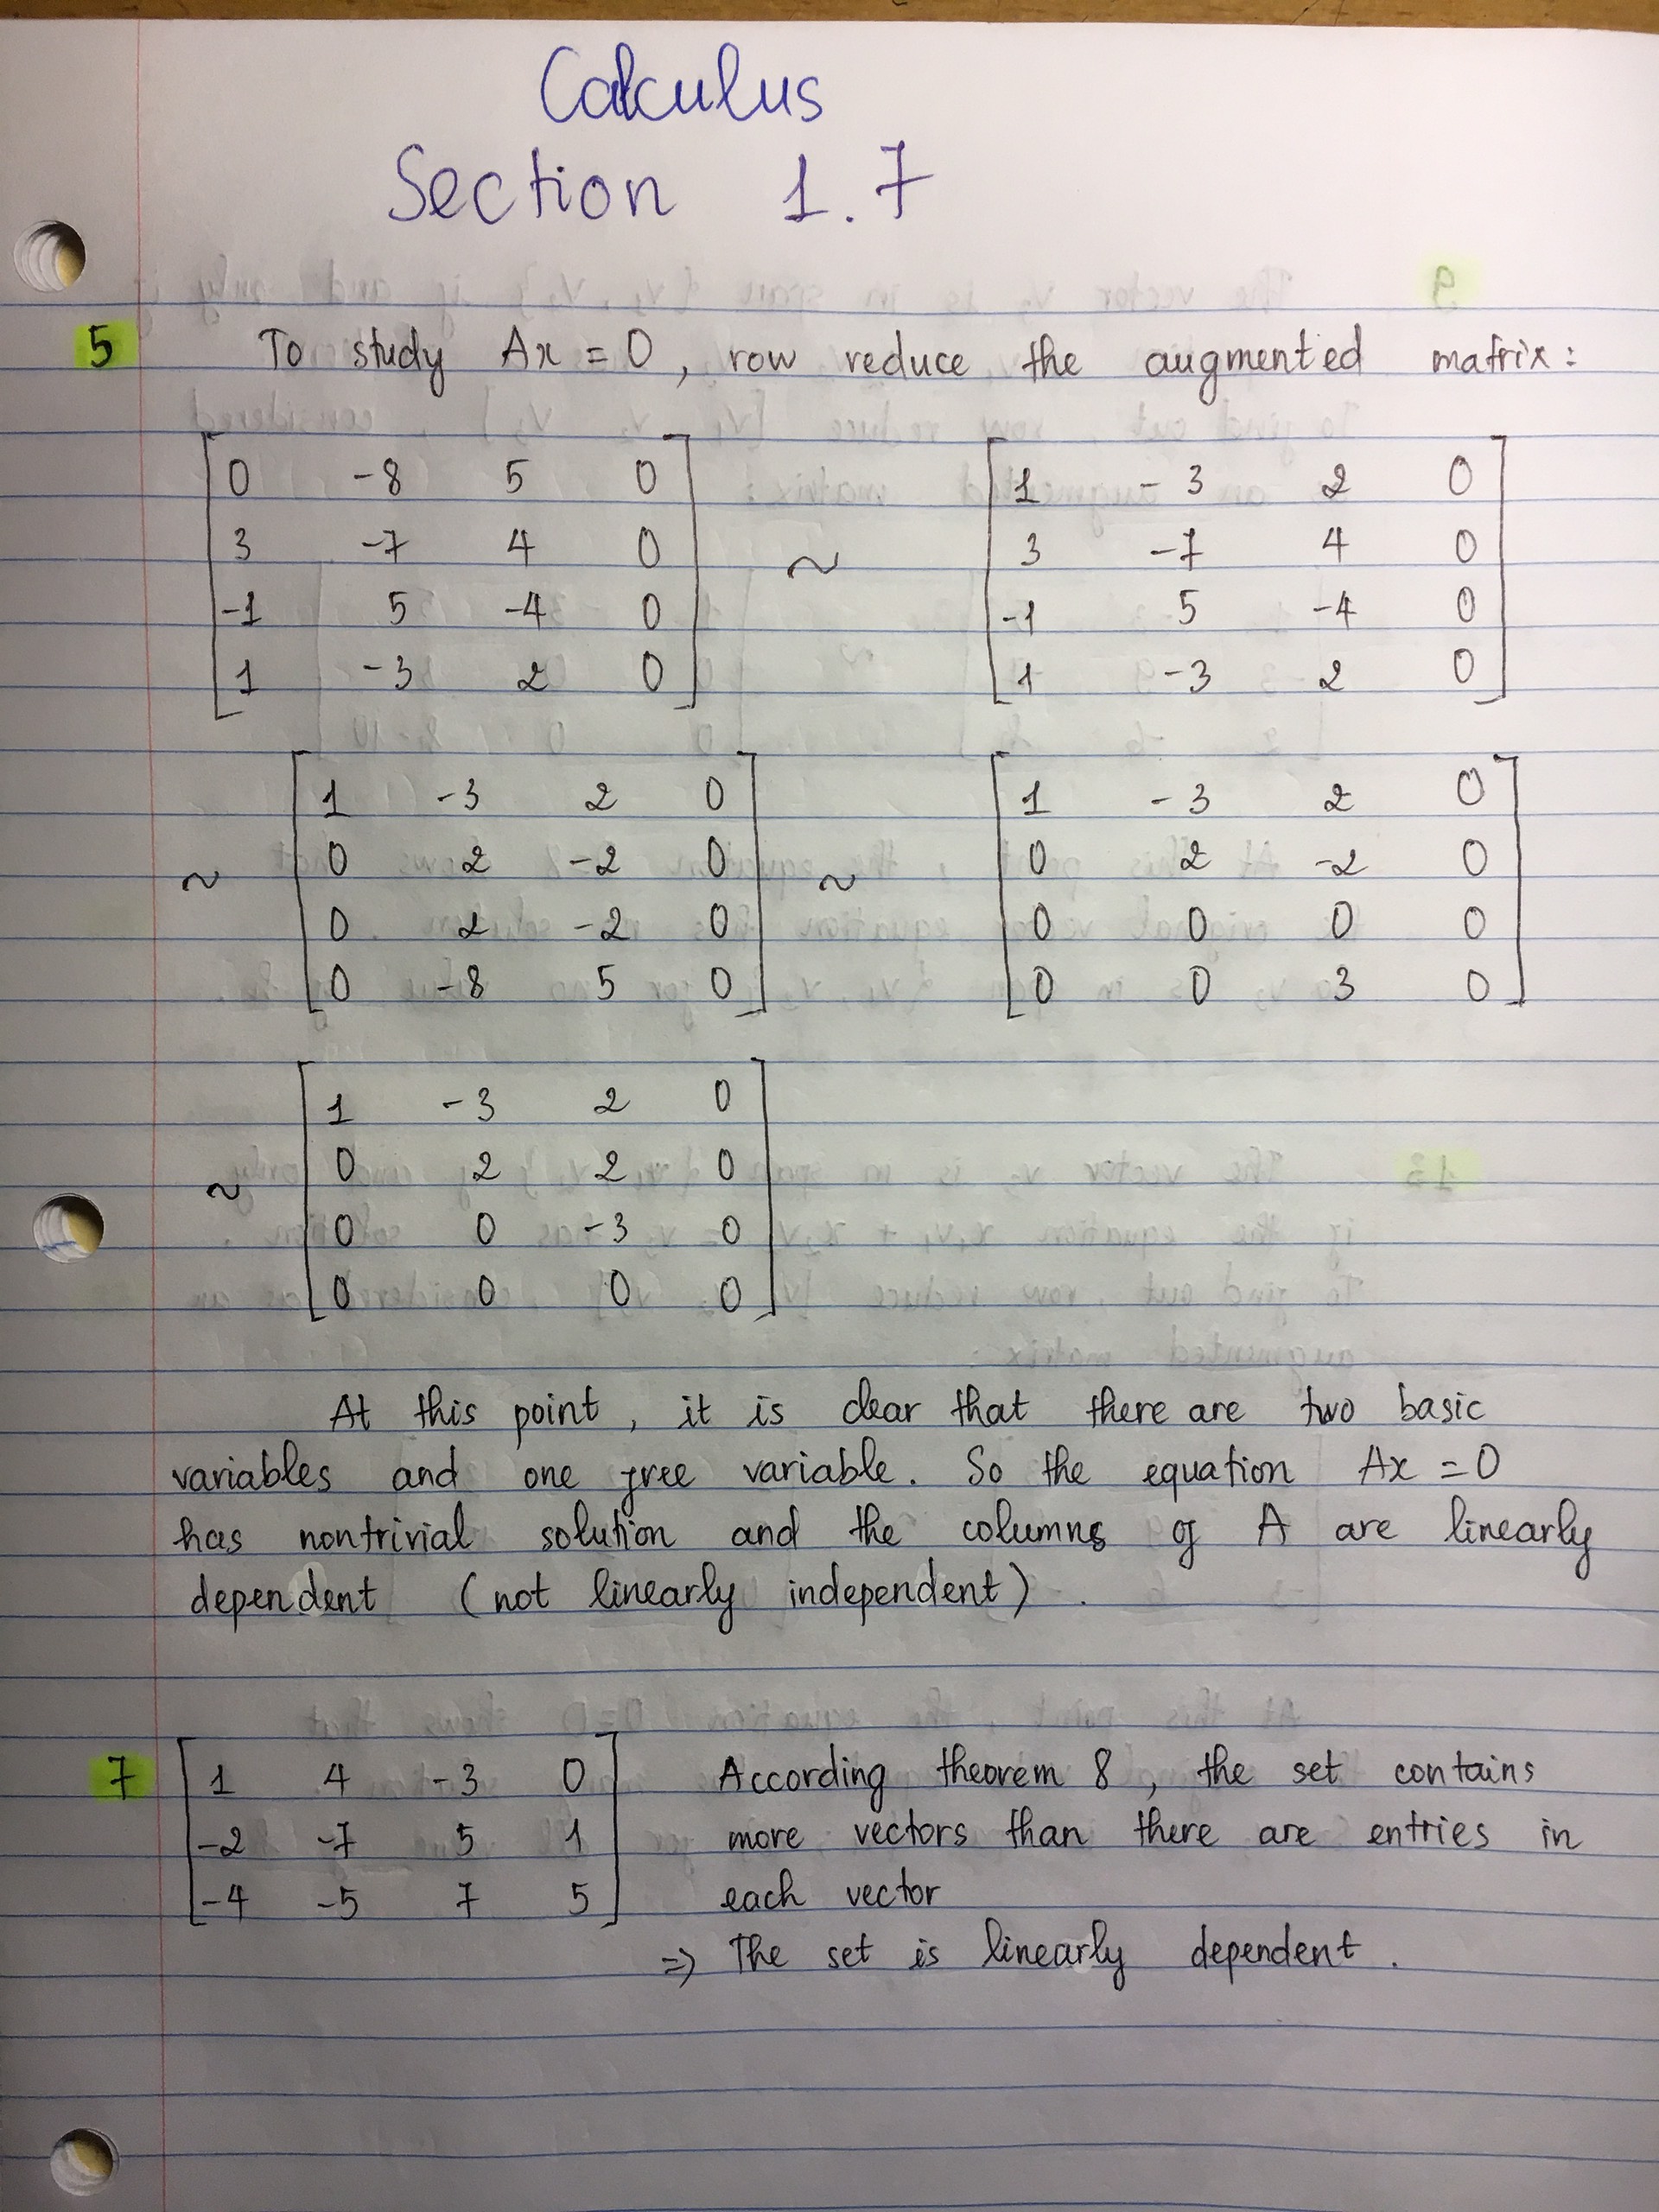 Calculus
Section 1.7
5 To study Ax = 0, row reduce the augmented matrix:
0 -8 5 0 1 -3 2 0
3 -7 4 0 ~ 3 -7 4 0
-1 5 -4 0 -1 5 -4 0
1 -3 2 0 1 -3 2 0
1 -3 2 0 1 -3 2 0
~ 0 2 -2 0 ~ 0 2 -2 0
0 2 -2 0 0 0 0 0
0 -8 5 0 0 0 3 0
1 -3 2 0
~ 0 2 2 0
0 0 -3 0
0 0 0 0
At this point, it is clear that there are two basic
variables and one free variable. So the equation Ax = 0
has nontrivial solution and the columns of A are linearly
dependent (not linearly independent).
7 1 4 -3 0 According theorem 8, the set contains
-2 -7 5 1 more vectors than there are entries in
-4 -5 7 5 each vector
=> The set is linearly dependent.